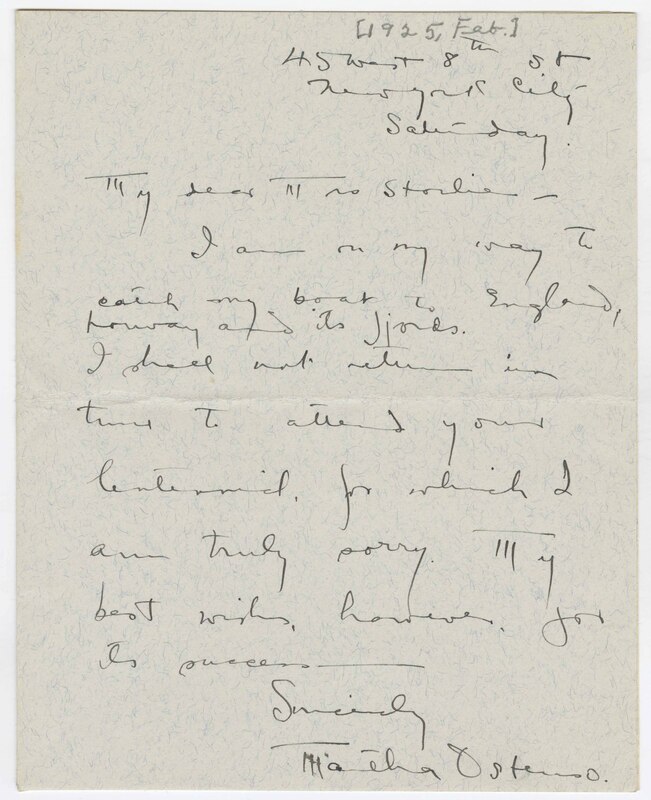 [1925, Feb.]
45 West 8th St
New York City
Saturday.
My dear Mrs Storlie —
I am on my way to
catch my boat to England,
Norway and its fjords.
I shall not return in
time to attend your
Centennial, for which I
am truly sorry. My
best wishes, however, for
its success —
Sincerely
Martha Ostenso.